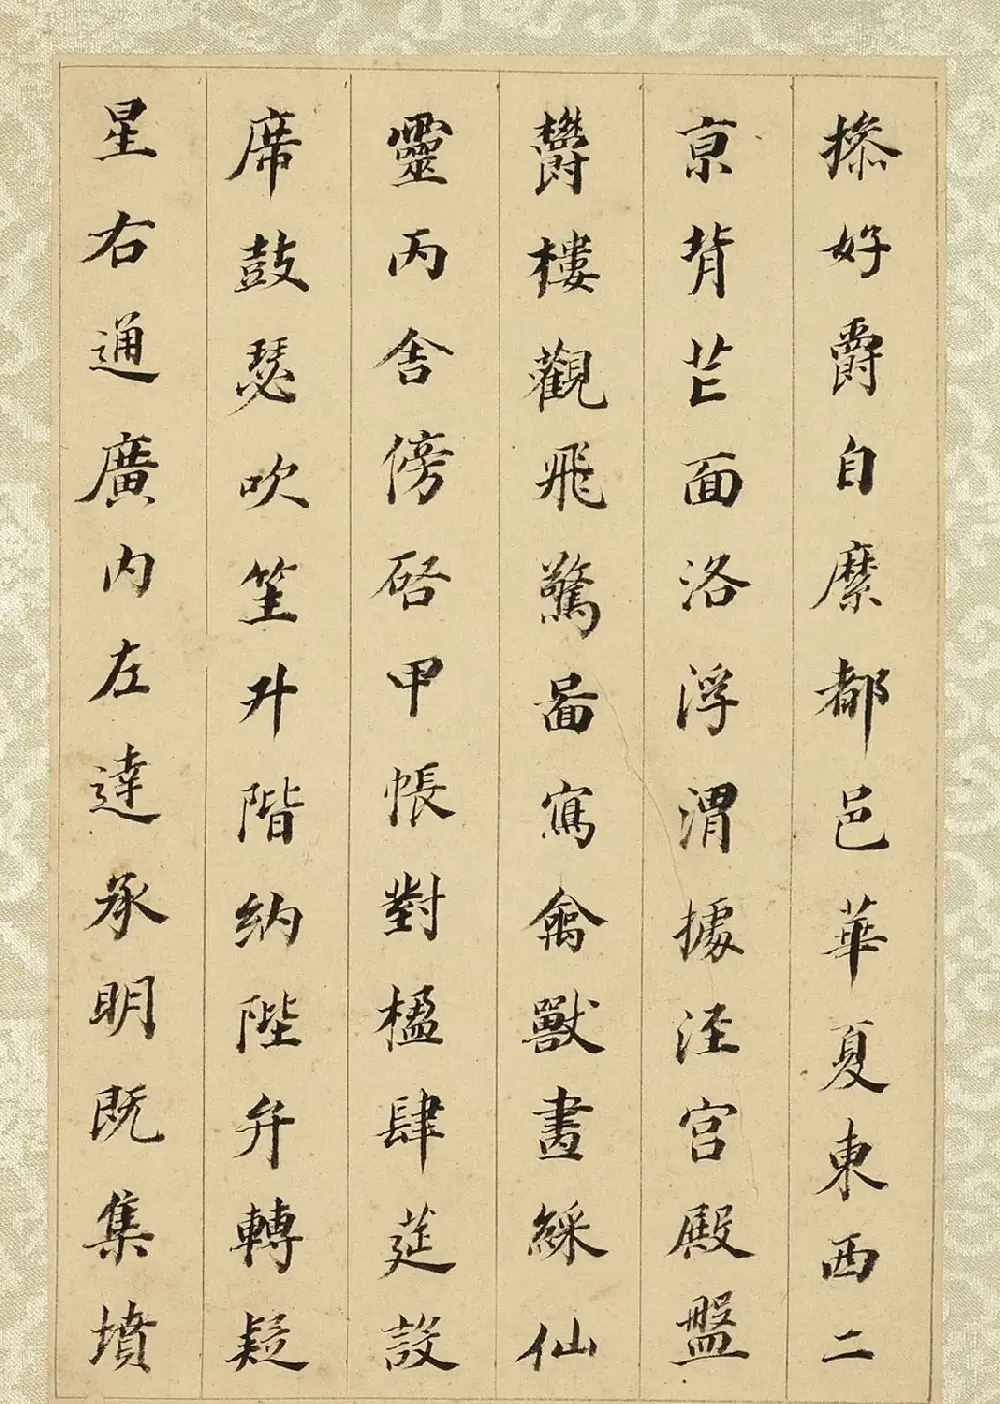 操好爵自縻都邑華夏東西二
京背芒面洛浮渭據涇宫殿盤
欝樓觀飛驚啚寫禽獸畫綵仙
靈丙舎傍啓甲帳對楹肆莚設
席鼓瑟吹笙升階納陛弁轉疑
星右通廣内左達承明既集墳